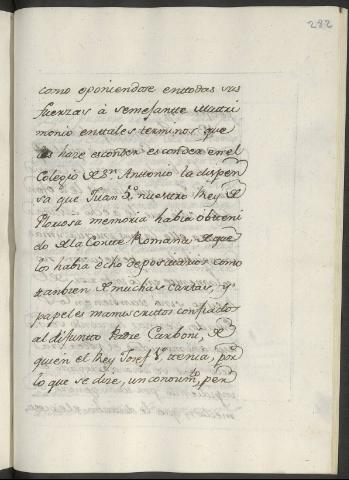 282
como oponiendose en todas sus
fuerzas á semejante Matri
monio en tales terminos que
les haze esconder esconder en el
Colegio de Sn Antonio la dispen
sa que Juan 5.º nuestro Rey de
Gloriosa memoria habia obteni
do de la Corte Romana de que
los habia echo depositarios como
tambien de muchas cartas, y
papeles manuscritos confiados
al difunto Padre Carboni, de
quien el Rey Josef 1.º tenia, por
lo que se dize, un conocim.to, per